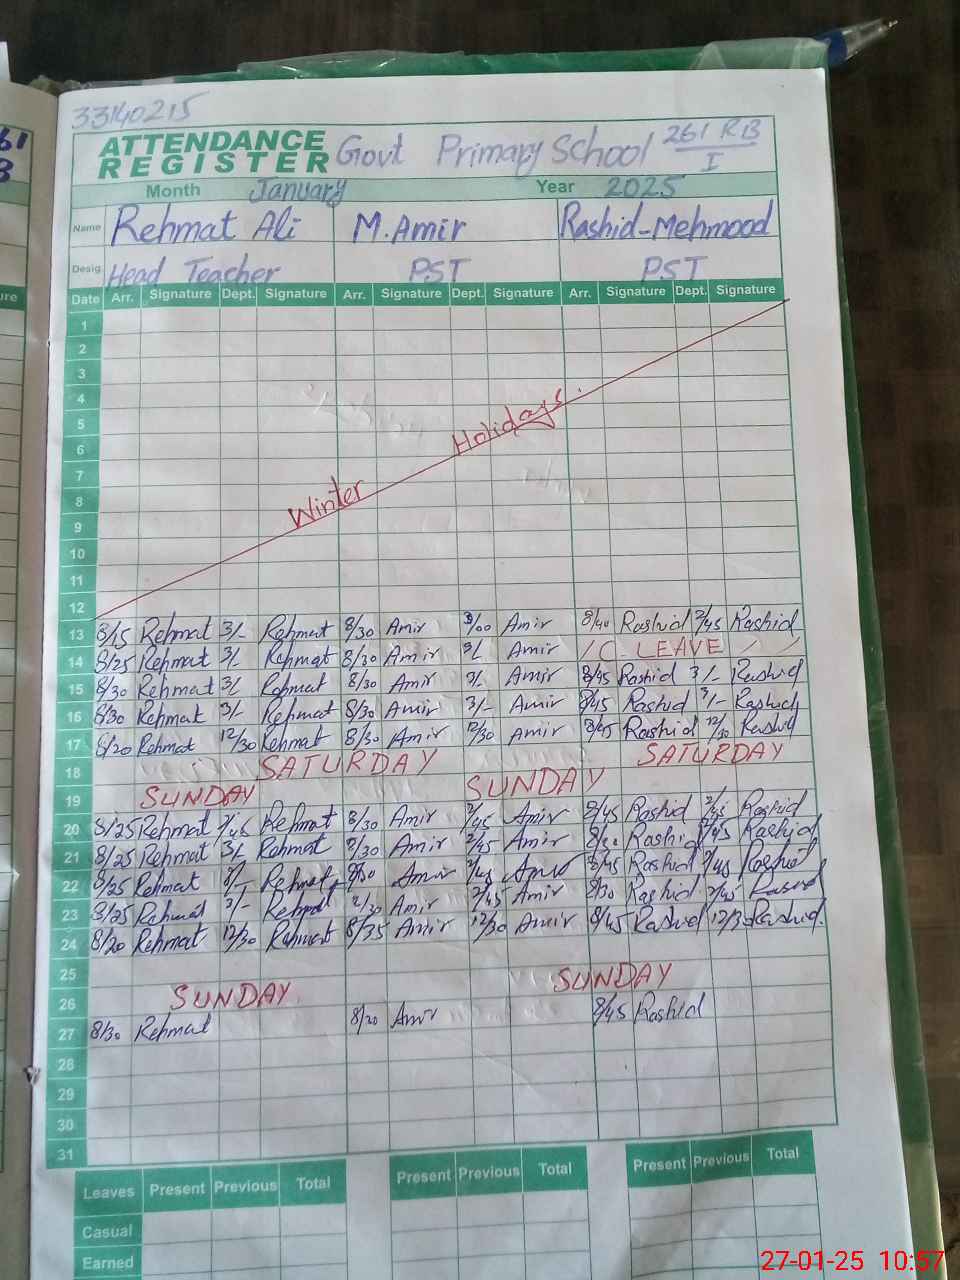 33140215
ATTENDANCE REGISTER Govt Primary School 261 RB I
Month January Year 2025
Name Rehmat Ali M. Amir Rashid-Mehmood
Desig. Head Teacher PST PST
Date Arr. Signature Dept. Signature Arr. Signature Dept. Signature Arr. Signature Dept. Signature
1
2
3
4
5
6
7
8
9
10
11
12
Winter Holidays.
13 8/15 Rehmat 3/- Rehmat 8/30 Amir 3/00 Amir 8/40 Rashid 2/45 Rashid
14 8/25 Rehmat 3/- Rehmat 8/30 Amir 3/- Amir C. LEAVE
15 8/30 Rehmat 3/- Rehmat 8/30 Amir 3/- Amir 8/45 Rashid 3/- Rashid
16 8/30 Rehmat 3/- Rehmat 8/30 Amir 3/- Amir 8/45 Rashid 3/- Rashid
17 8/20 Rehmat 12/30 Rehmat 8/30 Amir 12/30 Amir 8/45 Rashid 12/30 Rashid
18 SATURDAY SATURDAY
19 SUNDAY SUNDAY
20 8/25 Rehmat 2/45 Rehmat 8/30 Amir 2/45 Amir 8/45 Rashid 2/45 Rashid
21 8/25 Rehmat 3/- Rehmat 8/30 Amir 2/45 Amir Rashid 2/45 Rashid
22 8/25 Rehmat 3/- Rehmat 8/30 Amir 2/45 Amir 8/45 Rashid 2/45 Rashid
23 8/25 Rehmat 3/- Rehmat 8/30 Amir 2/45 Amir 8/30 Rashid 2/45 Rashid
24 8/20 Rehmat 12/30 Rehmat 8/35 Amir 12/30 Amir 8/45 Rashid 12/30 Rashid
25
26 SUNDAY SUNDAY
27 8/30 Rehmat 8/20 Amir 8/45 Rashid
28
29
30
31
Leaves Present Previous Total Present Previous Total Present Previous Total
Casual
Earned
27-01-25 10:57